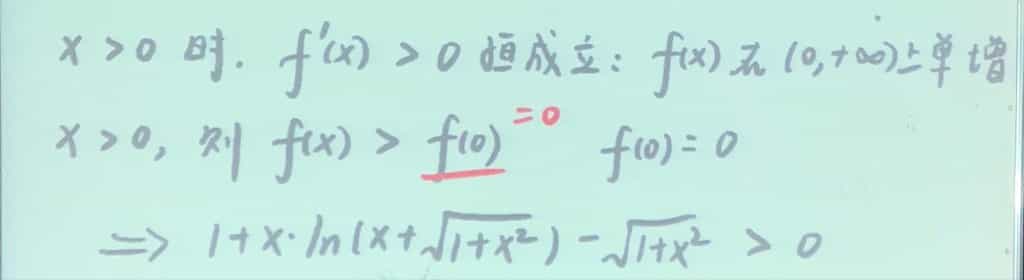 x > 0 时. f'(x) > 0 恒成立: f(x) 在 (0, +∞)上单增
x > 0, 则 f(x) > f(0) = 0 f(0) = 0
⟹ 1 + x · ln(x + √(1+x²)) - √(1+x²) > 0